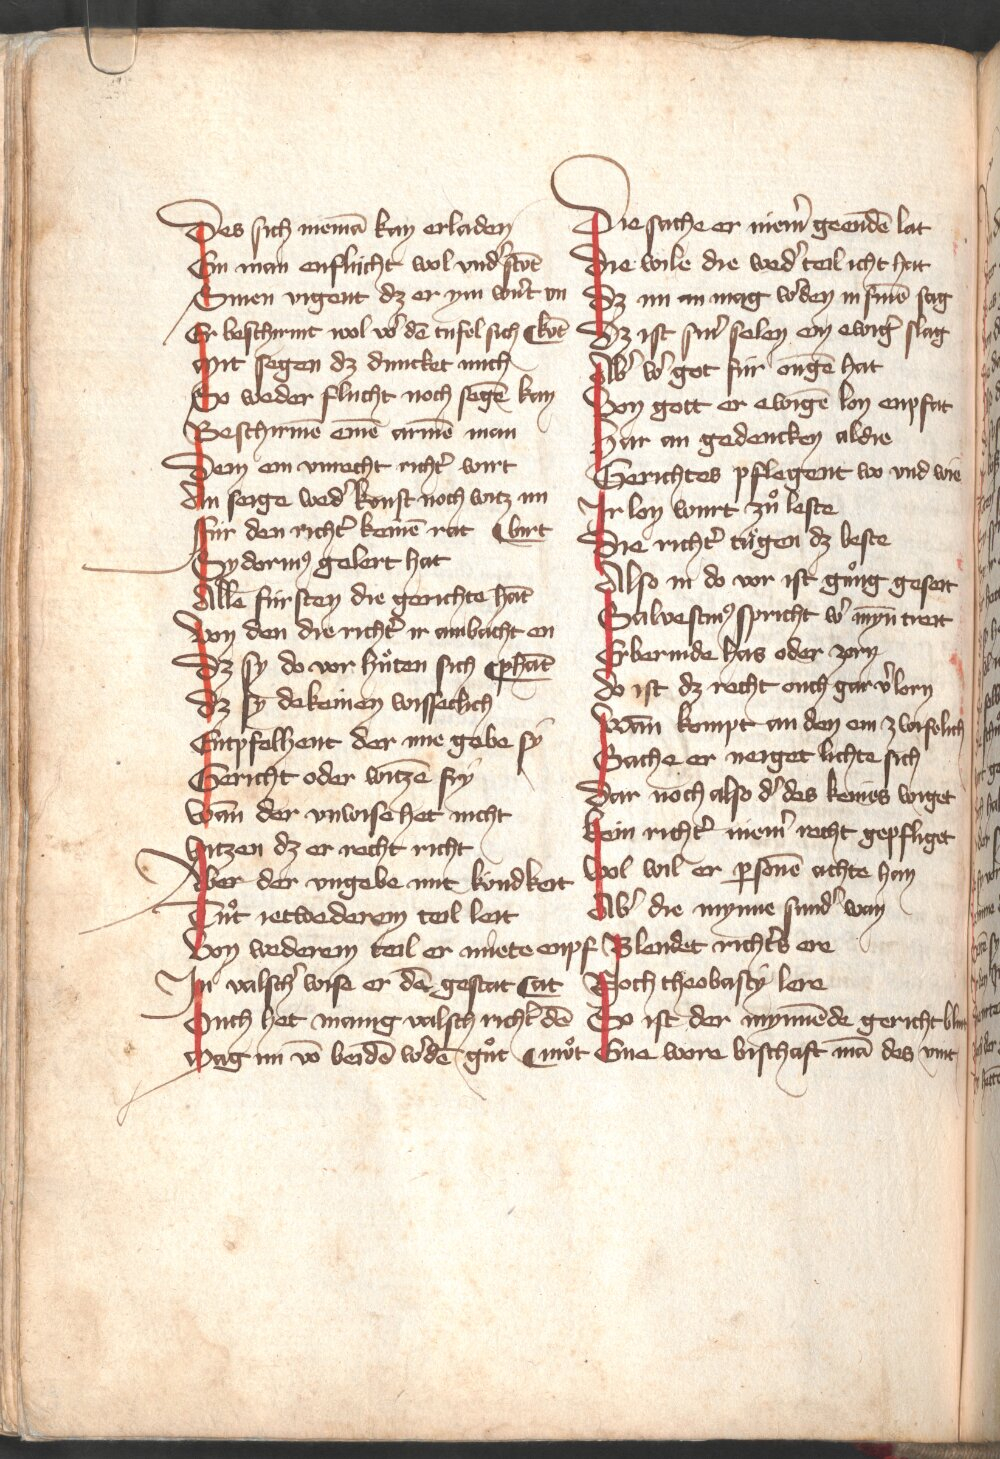 Des sich niemā kan erladen
Ein man enflucht wol vnd' stōt
Sinen vigent dz er ym wirt an
Er beschirmt wol vō dē tufel sich ¶kōt
Mit segen dz duncket mich
So weder flucht noch segē kan
Beschirmē einē armē man
Dem ein vnrecht richt' wirt
In seige wed' konst noch witz im
für den richt' keinē rat ¶birt
Sydorius gelert hat
Allē fürsten die gerichte hāt
Von den die richt' ir ambacht en
Dz sy do vor hůten sich ¶phāt
Dz sy dekeinen wisseclich
Entpfelhent der nie gebe sy
Gericht oder witzē fry
Wān der vnwise het nicht
witzen dz er recht richt
Aber der vngebe mit kündkeit
Tůt ietwederem teil leit
Von wederem teil er miete enpf
In valsch' wise er dē gestat ¶at
Ouch het manig valsch richt' dē
Mag im vō beidē w'dē gůt ¶můt
Die sache er niem' geendē lat
Die wile die wed' teil icht hat
Dz im an mag w'den in sinē sag
Dz ist sin' selen ein ewig' slag
Ab' w' got für ougē hat
Von gott er ewigē lon enpfat
Har an gedencken aldie
Gerichtes pflegent wo vnd wie
Ir lon wirt zů leste
Die richt' tügen dz beste
Also in do vor ist gnůg geseit
Salvestin' spricht w' mȳn treit
Erbermde has oder zorn
Do ist dz recht ouch gar v'lorn
Wan kompt an den ein zwifelich
Sache er neiget lichte sich
Dar noch also d' des keines wiget
kein richt' niem' recht gepfliget
Wol wil er psonē achte han
Ab' die mynne sund' wan
Blendet richt's ere
Noch theobasty lere
So ist der mynnēde gericht blint
Ene wore bischaft mā des vint